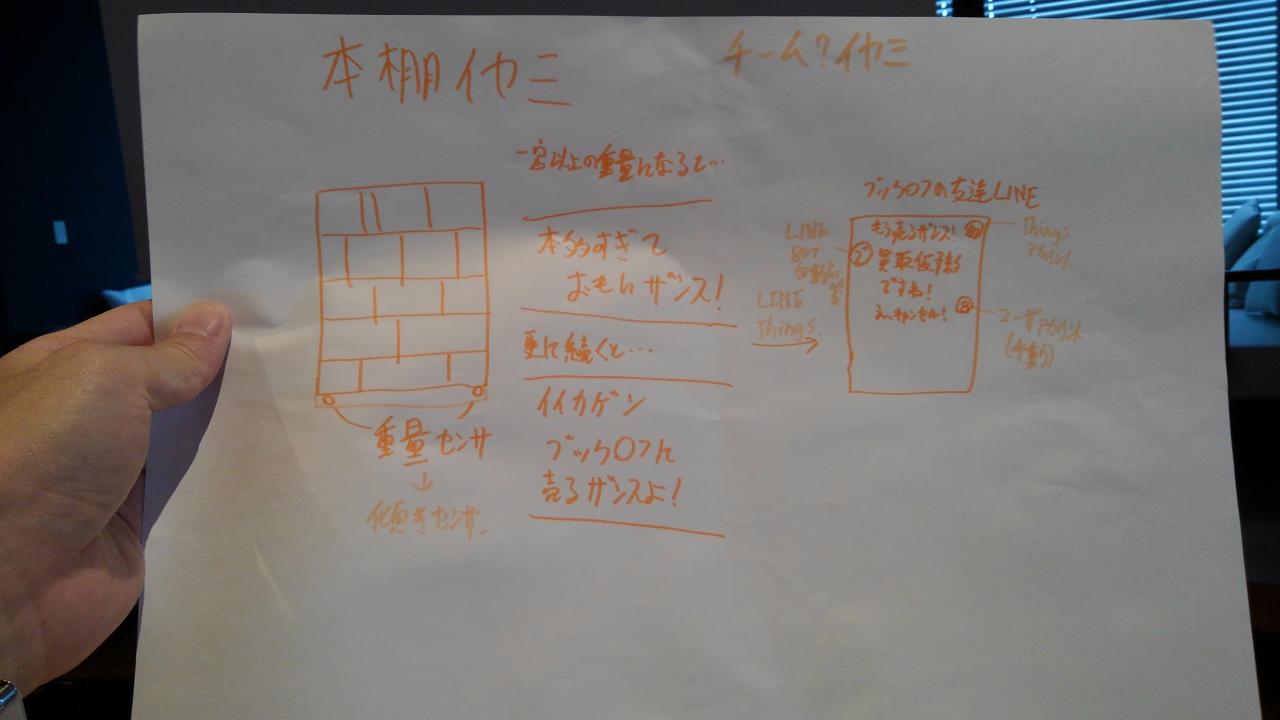 本棚イヤミ
チーム?イヤミ
一定以上の重量になると…
本多すぎて
おもいザンス!
更に続くと…
イイカゲン
ブックOフに
売るザンスよ!
重量センサ
↓
傾きセンサ
LINE
BOT
LINE
Things
ブックOフの友達LINE
もう売るザンス!
買取依頼
ですね!
え、キャンセル!
Things
アカウント
ユーザアカウント
(手動)